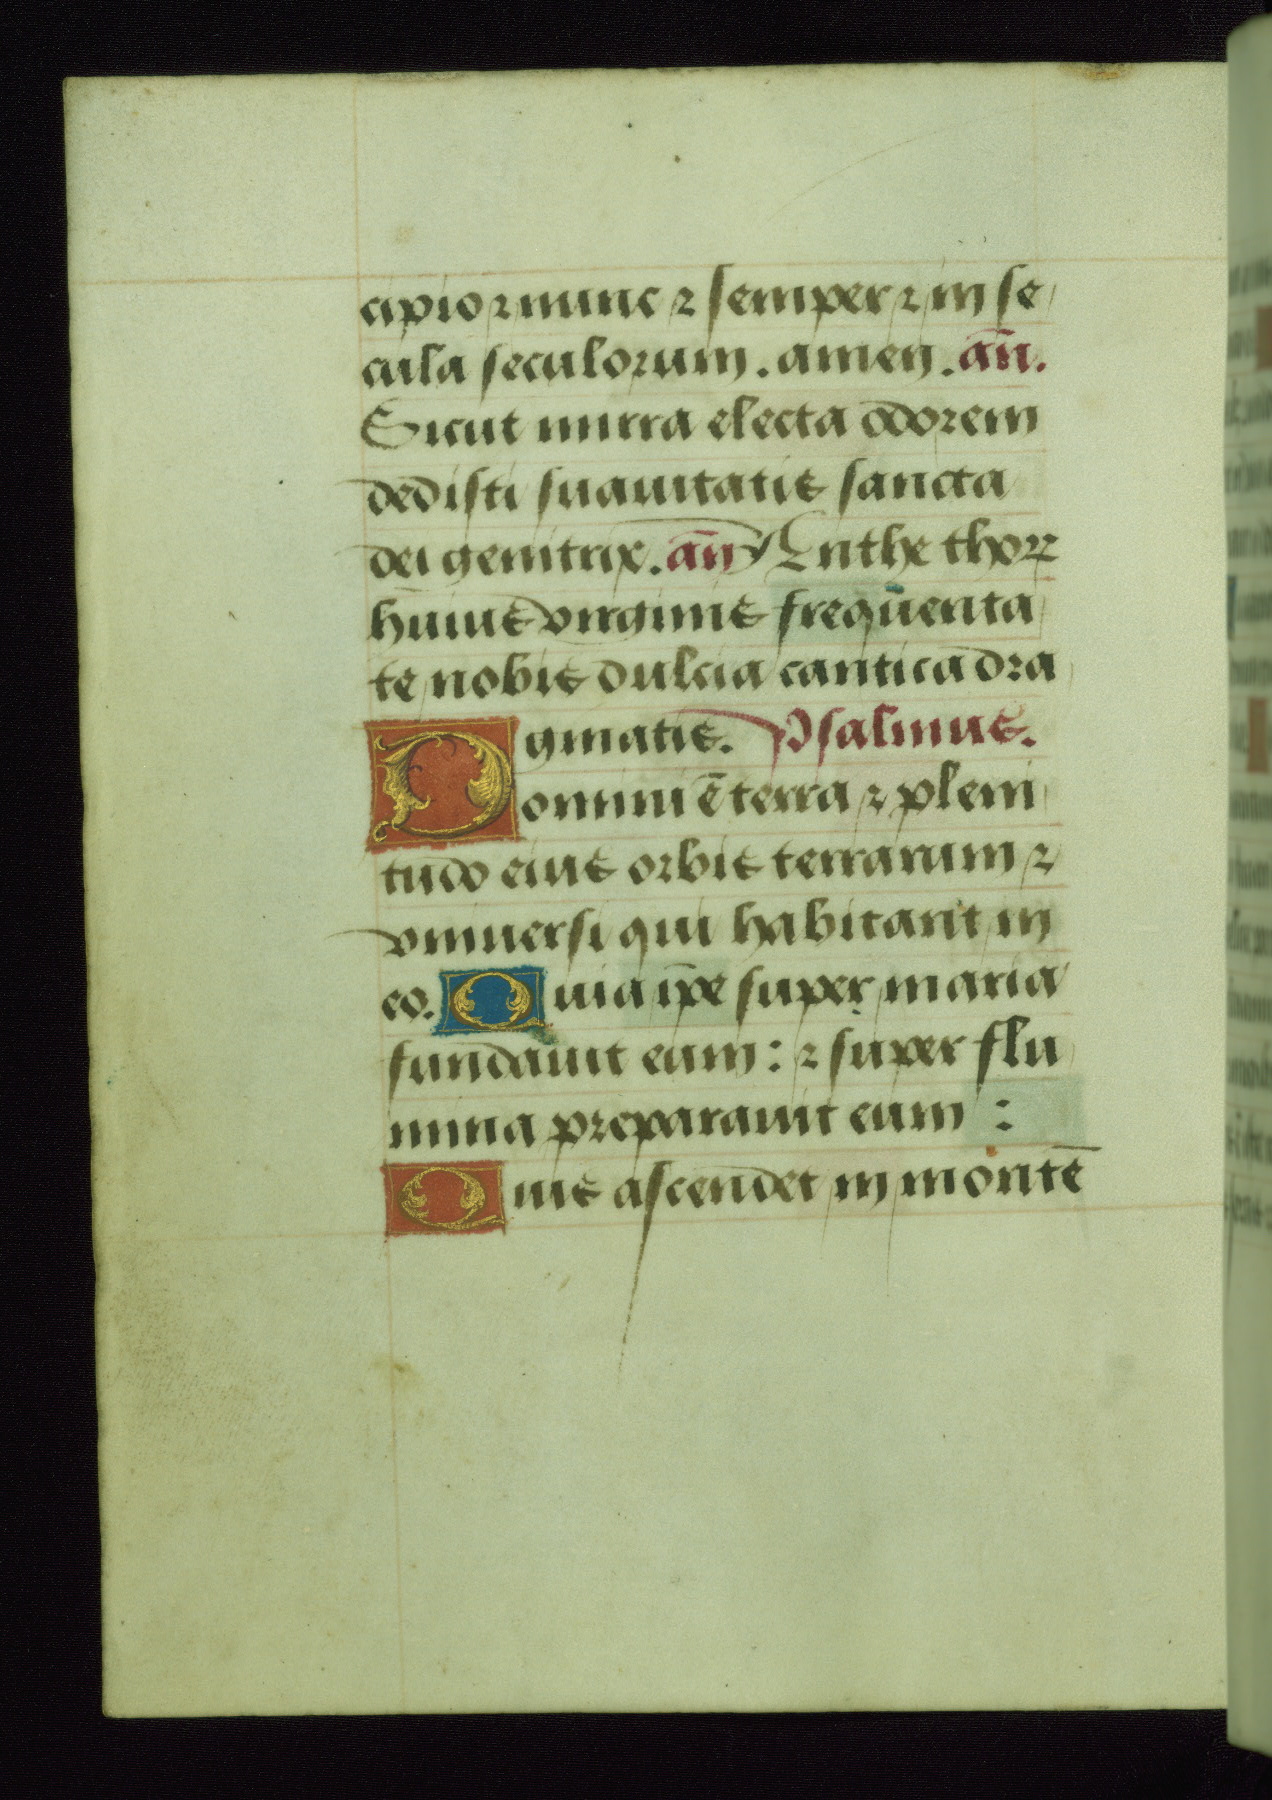 cipio ⁊ nunc ⁊ semper ⁊ in se
cula seculorum. amen. an̄.
Sicut mirra electa odorem
dedisti suauitatis sancta
dei genitrix. an̄ Anthe thoꝝ
huius virginis frequenta
te nobis dulcia cantica dra
gmatis. Psalmus.
Domini ē terra ⁊ pleni
tudo eius orbis terrarum ⁊
vniuersi qui habitant in
eo. Quia ip̄e super maria
fundauit eum: ⁊ super flu
mina preparauit eum :
Quis ascendet in montē